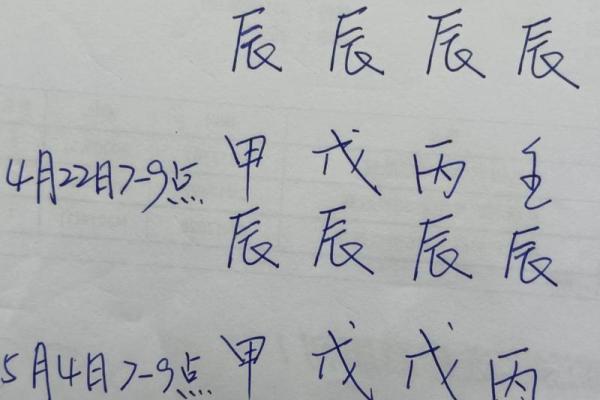 辰 辰 辰 辰
4月22日7-9点 甲 戊 丙 壬
辰 辰 辰 辰
5月4日7-9点 甲 戊 戊 丙